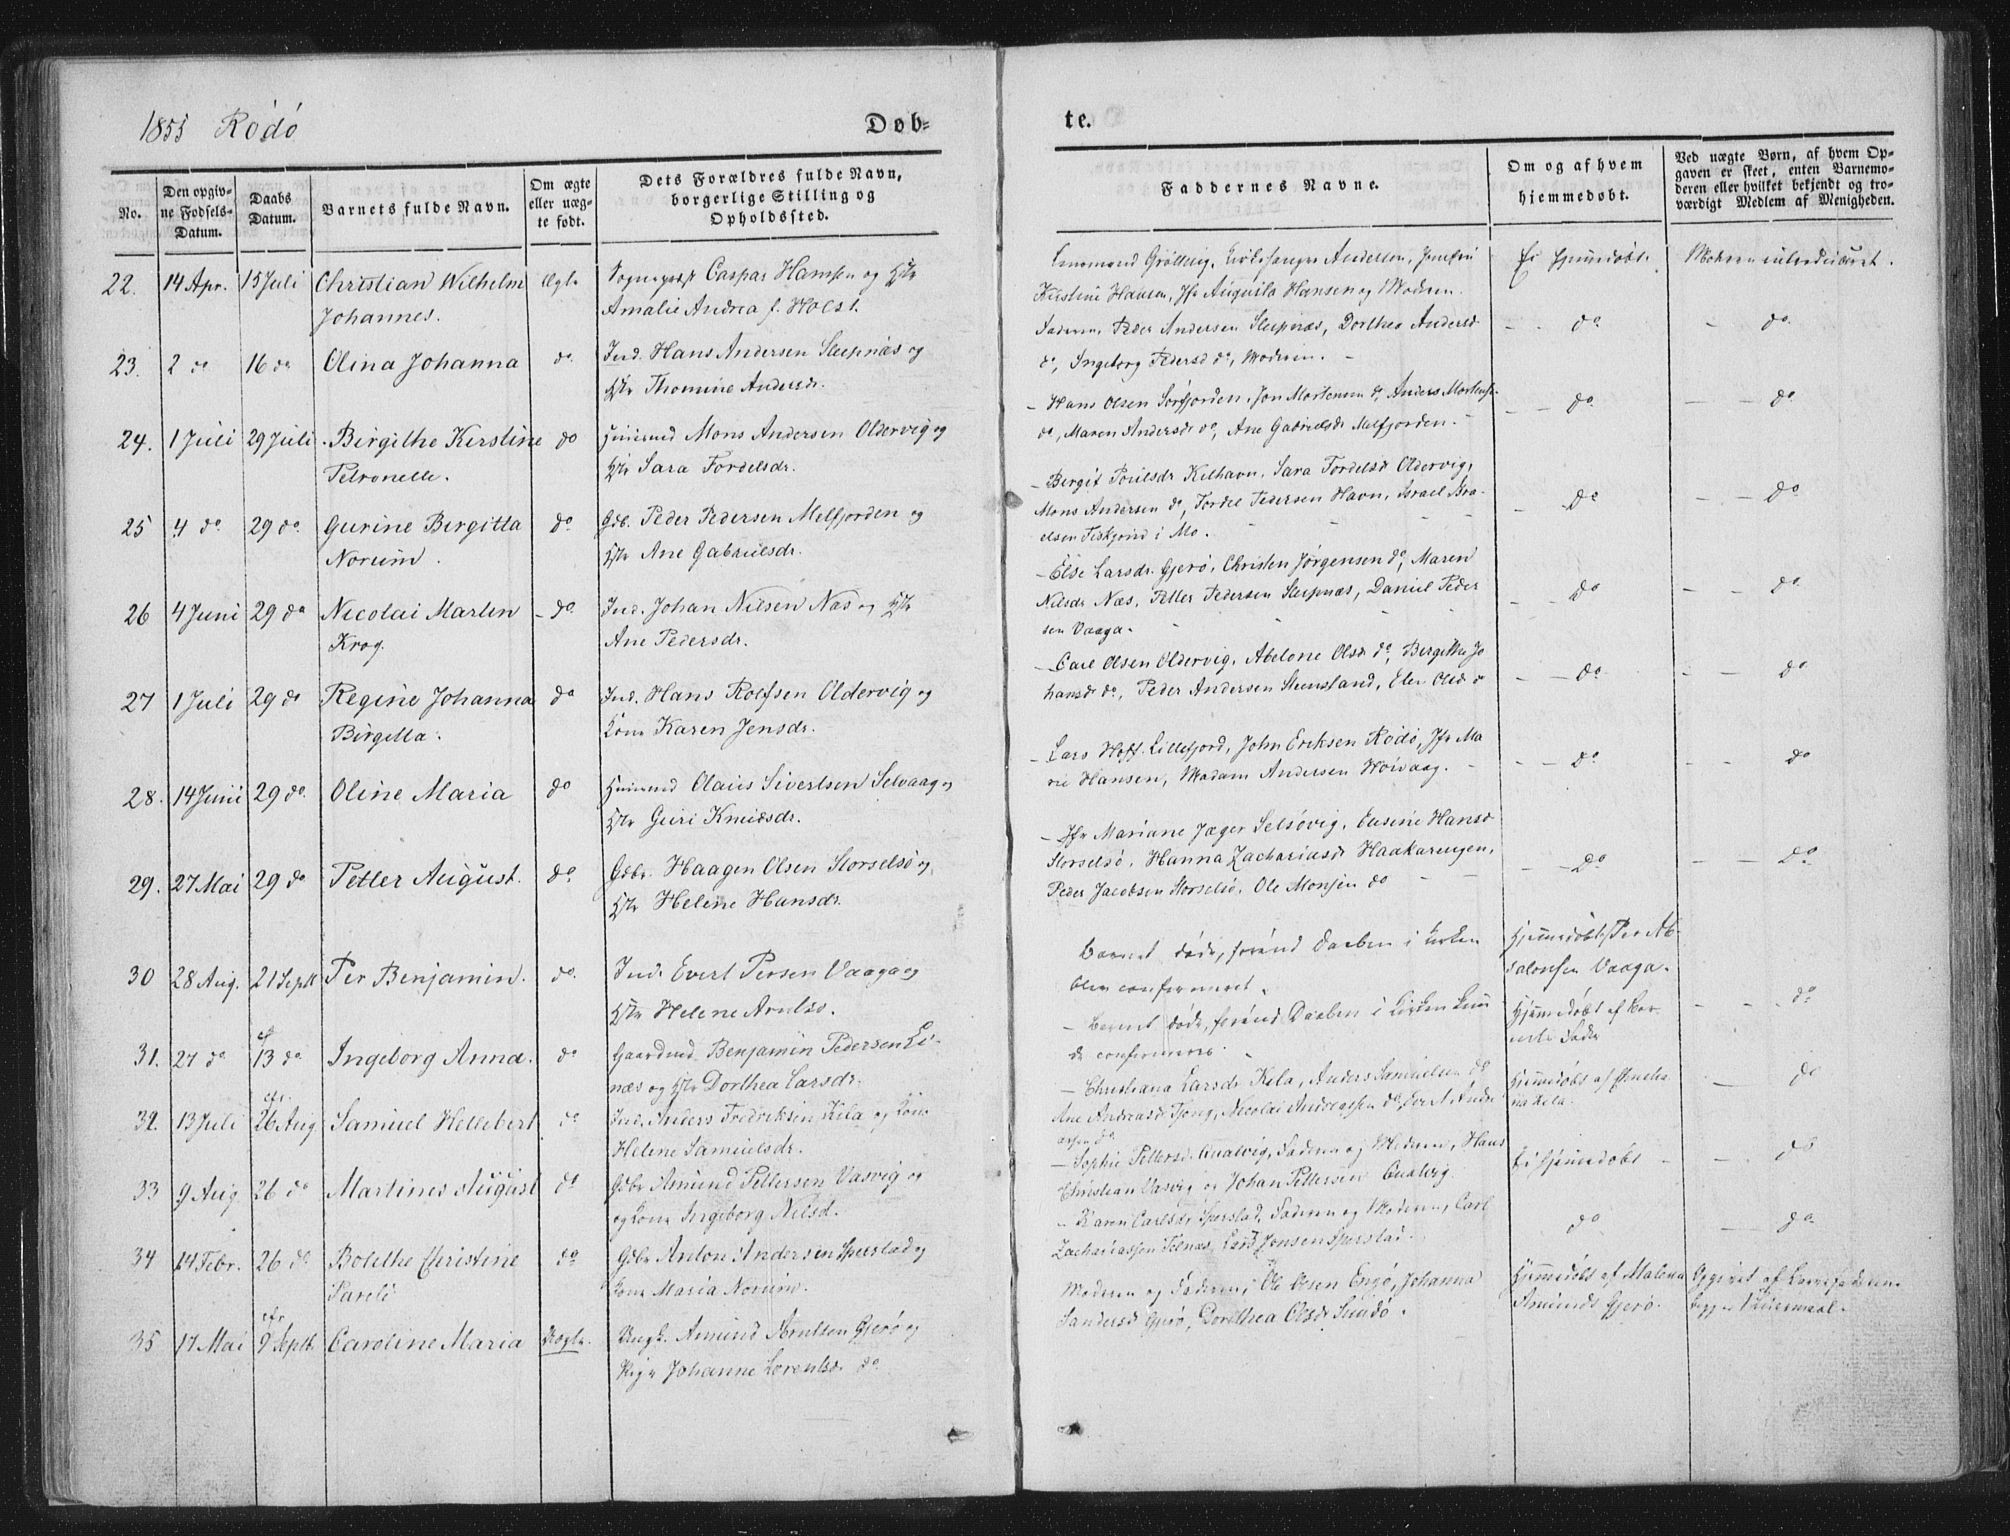 1855 Rödö
Døb-
te.
No.
Den opgiv-
ne Fødsels-
Datum.
Daabs
Datum.
Barnets fulde Navn.
Om ægte
eller uæg-
te født.
Dets Forældres fulde Navn,
borgerlige Stilling og
Opholdssted.
Faddernes Navne.
Om og af hvem
hjemmedøbt.
Ved uægte Børn, af hvem Op-
gaven er skeet, enten Barnemo-
deren eller hvilket bekjendt og tro-
værdigt Medlem af Menigheden.
22. 14 Apr. 15 Juli Christian Wilhelm Ægte Caspar Hansen og Htr
Johannes. Amalie Andrea f. Holst.
Andersen,
Kirstine Hansen, Jfr Augusta Hansen og Moderen.
Ei hjemmedøbt. Moderen introduceret.
23. 2 do 16 do Olina Johanna do Ind. Hans Andersen Sleipnæs og
Htr Thomine Andersdr.
Faderen, Peder Andersen Sleipnæs, Dorthea Andersd
do, Ingeborg Pedersd do, Moderen. -
- - do - do.
24. 1 Juli 29 Juli Birgithe Kerstine do Huusmd Mons Andersen Oldervig og
Petronelle. Htr Sara Fordelsdr.
- Hans Olsen Sörfjorden, Jon Mortensen do, Anders Mortens.
do, Maren Andersdr do, Ane Gabrielsdr Melfjorden. -
- - do. - - do
25 4 do 29 do Gurine Birgitta do Gdb. Peder Pedersen Melfjorden og
Norum. Htr Ane Gabrielsdr.
- Birgit Poulsdr Kilhavn, Sara Fordelsd Oldervig,
Mons Andersen do, Fordel Pedersen Havn, Israel Bra-
elsen i Mo.
- - do - - do
26 4 Juni 29 do Necolai Martin - do Ind. Johan Nilsen Næs og Htr
Krog. Ane Pedersdr.
- Else Larsdr. Gjerö, Christen Jörgensen do, Maren
Nilsdr Næs, Petter Pedersen Sleipnæs, Daniel Peder
sen Vaaga.
- - do - - do
27 1 Juli 29 do Regine Johanna do Ind. Hans Rolfsen Oldervig og
Birgitta. Kone Karen Jensdr.
- Carl Olsen Oldervig, Abelone Olsdr do, Bergithe Jo
hansdr do, Peder Andersen Steensland, Elen Olsd do
- - do - - do
28. 14 Juni 29 do. Oline Maria do Huusmd Olaus Sivertsen Selvaag og
Htr Guri Knudsdr.
- Lars Hoff Lillefjord, John Eriksen Rödö, Jfr Ma
rie Hansen, Madam Andersen Horvaag. -
- - do - - do
29. 27 Mai 29 do Petter August. do. Gdbr. Haagen Olsen Storselsö og
Htr Helene Hansdr.
- Jfr Mariane Jæger Selsövig, Eusine Hansd
Storselsö, Hanna Zachariasdr Haakarengen,
Peder Jacobsen Storselsö, Ole Monsen do - -
- do - - do
30 28 Aug. 21 Sept Per Benjamin. do. Ind. Evert Persen Vaaga og
Htr Helene Arntsd.
Barnet døde, forend Daaben i kirken
blev confirmeret.
Hjemmedøbt Per Ab-
salonsen Vaaga.
31. 27 do 13 do Ingeborg Anna. do Gaardmd Benjamin Pedersen Li-
næs og Htr Dorthea Larsdr.
- Barnet døde, forend Daaben i kirken kun
de confirmeres.
Hjemmedøbt af Bar-
nets Fader
- - do
32. 13 Juli 26 Aug. Samuel Hellebert do Ind. Anders Fredriksen Kila og Kone
Helene Samuelsdr.
- Christiana Larsdr Kila, Anders Samuelsen do
Ane Andreasd Tjong, Necolai Andreassen do,
assen do.
Hjemmedøbt af
na Kila.
- do
33 9 Aug 26 do Martines August do Gdbr Amund Pettersen Vasvig og
og Kone Ingeborg Nilsd.
- Sophie Pettersd. Qualvig, Faderen og Moderen, Hans
Christian Vasvig og Johan Pettersen Qualvig.
Ei hjemmedøbt - - do
34 14 Febr. 26 do Bolethe Christine do Gdbr Anton Andersen Sperstad og
Sareli Kone Maria Norum.
- Karen Carlsdr Sperstad, Faderen og Moderen, Carl
Zachariassen Selnæs, Lars Jonsen Sperstad.
do - - do
35 17 Mai 9 Septb. Caroline Maria Uægte. Ungk. Amund Arntsen Gjerö og
Pige Johanne Lorentsd. do
Moderen og Faderen, Ole Olsen Engö, Johanna
Sandersd Gjerö, Dorothea Olsdr Sundö.
Hjemmedøbt af Malena
Amunds Gjerö.
Opgivet af Barnefaderen
begges Leiermaal.